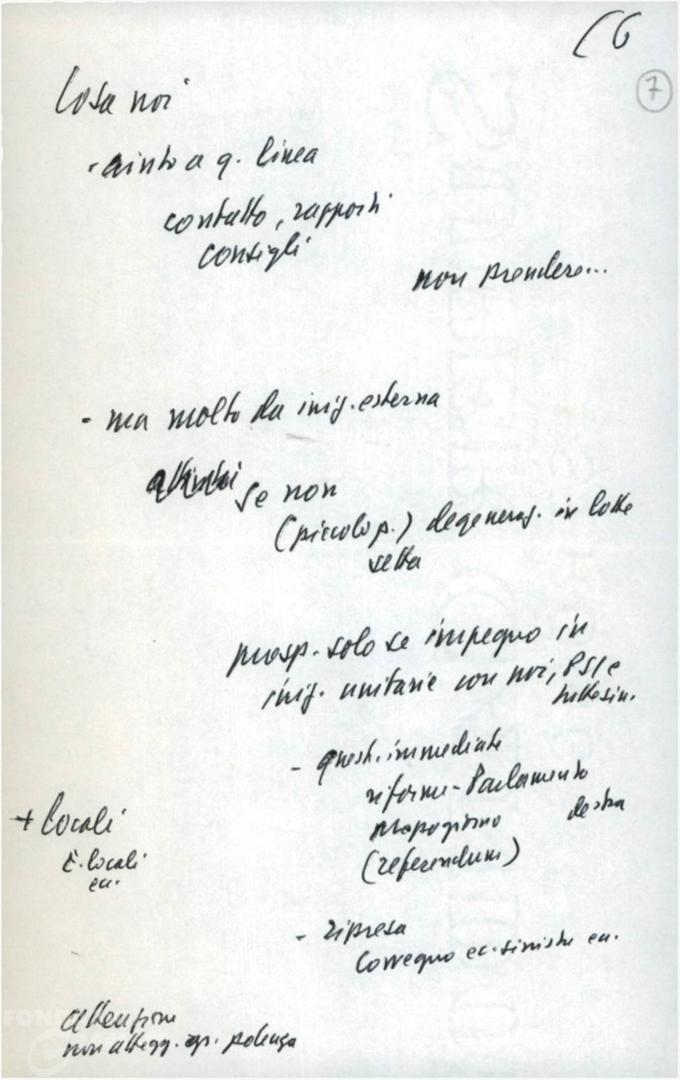 CG
7
Cosa noi
- aiuto a q. linea
contatto, rapporti
consigli
non prendere...
- ma molto da iniz. esterna
se non
(piccolo p.) degeneraz. in lotte
setta
prosp. solo se impegno in
iniz. unitarie con noi, PSI e
tutte sin.
- quest. immediate
riforme - Parlamento
destra
(referendum)
+ locali
E. locali
ecc.
- ripresa
Convegno ec. sinistre ecc.
attenzione
non attegg. potenza
FON